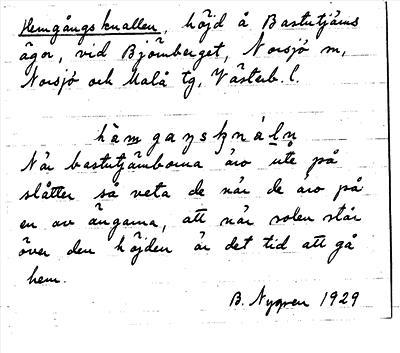 Hemgångsknallen, höjd å Bastutjärns
ägor, vid Björnberget, Norsjö sn,
Norsjö och Malå tg, Västerb. l.
hämgaŋsknáln
När bastutjärnborna äro ute på
slåtter så veta de när de äro på
en av ängarna, att när solen står
över den höjden är det tid att gå
hem.
B. Nygren 1929